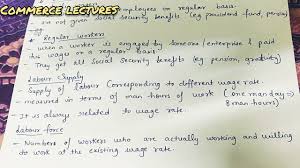 COMMERCE LECTURES
employees on regular basis.
are not given social security benefits (eg provident fund, pension)
Regular workers
- when a worker is engaged by someone/enterprise & paid
his wages on a regular basis.
- They get all social security benefits (eg pension, gratuity)
Labour Supply
- Supply of labour corresponding to different wage rate.
- measured in terms of man hours of work (one manday =
8 man-hours)
- It is always related to wage rate.
Labour force
- Numbers of workers who are actually working and willing
to work at the existing wage rate.